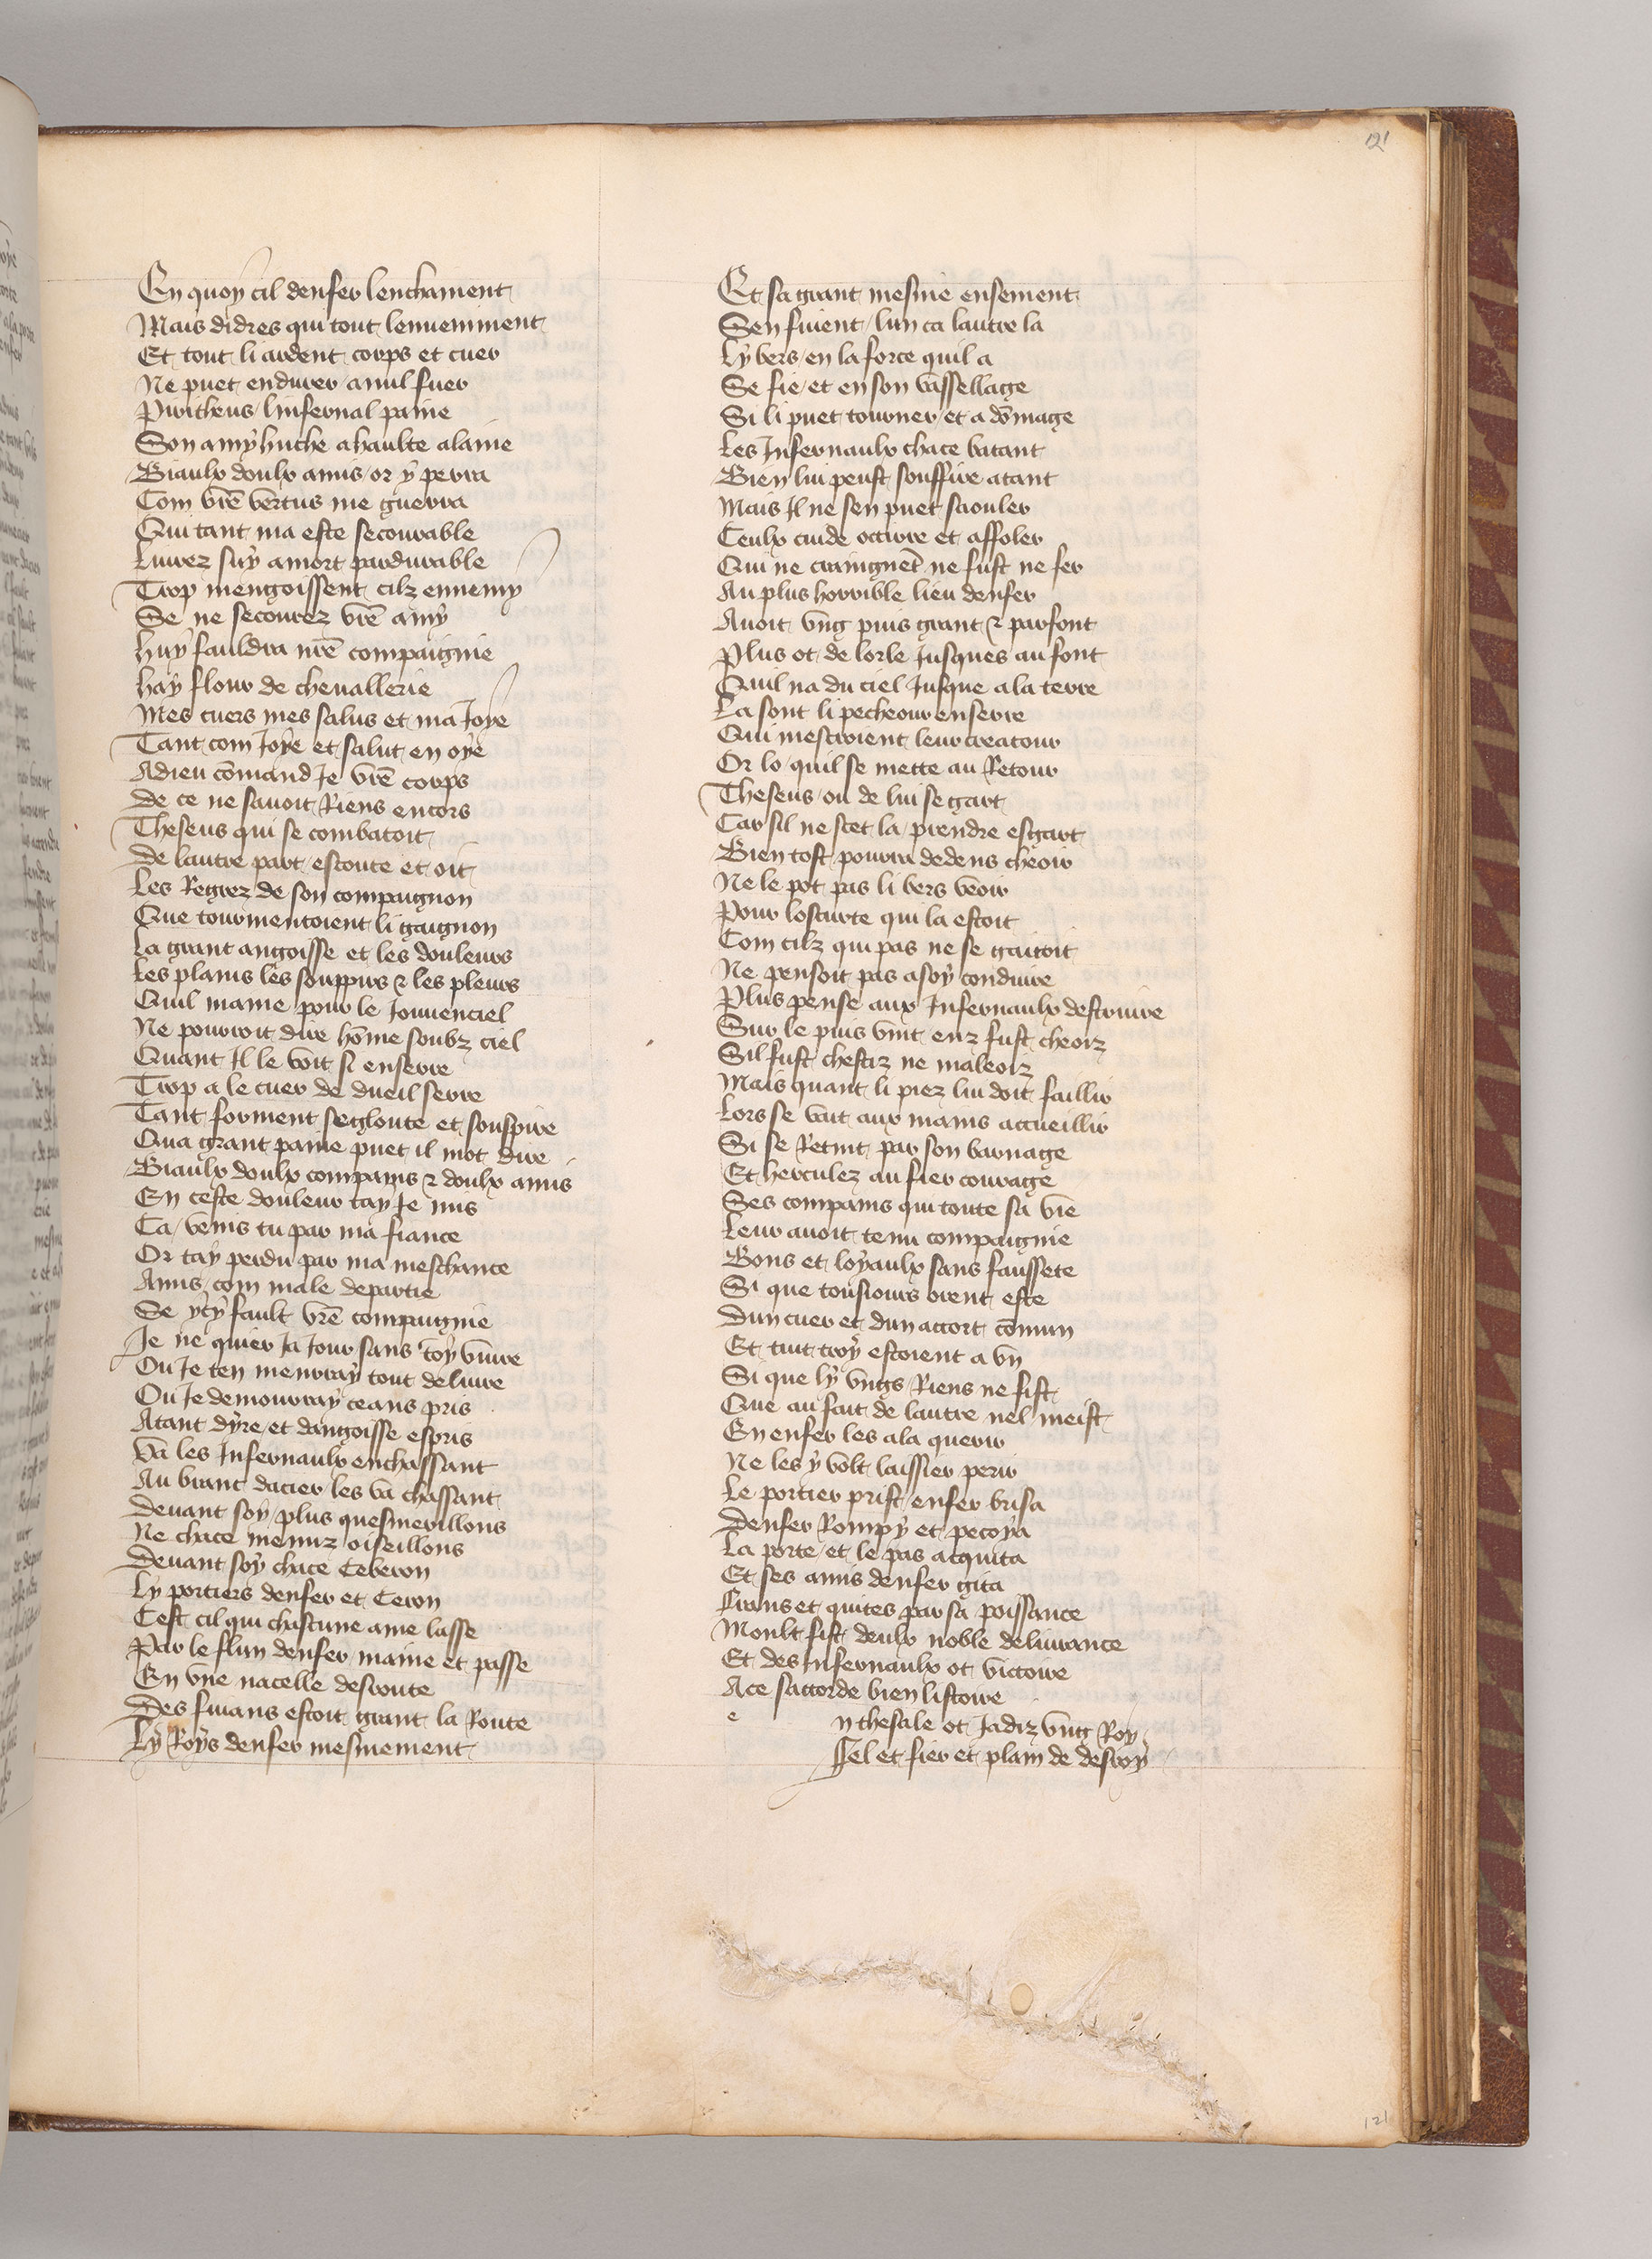 121
En quoy cil denfer lenchainent
Mais didres qui tout lenvenniment
Et tout li ardent corps et cuer
Ne puet endurer a nul fuer
Piritheus linfernal paine
Son amy huche a haulte alaine
Biaulx doulx amis / or y perra
Com vr̄e vertus me guerra
Qui tant ma este secourable
Livrez suy a mort pardurable
Trop mengoissent cilz ennemy
Se ne secourez vr̄e amy
Huy fauldra nr̄e compaignie
Hay flour de chevallerie
Mes cuers mes salus et ma Joye
Tant com Joye et salut en oye
Adieu cōmand Je vr̄e corps
De ce ne savoit Riens encors
Theseus qui se combatoit
De lautre part escoute et oit
Les Regrez de son compaignon
Que tourmentoient li gaignon
La grant angoisse et les douleurs
Les plains les souppirs ⁊ les pleurs
Quil maine pour le Jouvenciel
Ne pourroit dire hōme soubz ciel
Quant Il le voit si enserre
Trop a le cuer de dueil serre
Tant forment segloute et souspire
Qua grant paine puet il mot dire
Biaulx doulx compains ⁊ doulx amis
En ceste douleur tay Je mis
Ca / venis tu par ma fiance
Or tay perdu par ma meschance
Amis / com male departie
Se ycy fault vr̄e compaignie
Je ne quier Ja Jour sans toy vivre
Ou Je ten menray tout delivre
Ou Je demourray ceans pris
Atant dyre / et dangoisse espris
Va les Infernaulx enchassant
Au branc dacier les va chassant
Devant soy / plus quesmerillons
Ne chace menuz oiseillons
Devant soy chace Ceberon
Ly portiers denfer et Ceron
Cest cil qui chascune ame lasse
Par le flun denfer / maine et passe
En vne nacelle desroute
Des fuians estoit grant la Route
Ly Roys denfer mesmement
Et sa grant mesnie ensement
Sen fuient / lun ca lautre la
Ly bers / en la force quil a
Se fie / et en son vassellage
Si li puet tourner / et a dōmage
Les Infernaulx chace batant
Bien lui peust souffire atant
Mais Il ne sen puet saouler
Ceulx cuide occirre et affoler
Qui ne craingnēt ne fust ne fer
Au plus horrible lieu denfer
Avoit vng puis grant ⁊ parfont
Plus ot de lorle Jusques au font
Quil na du ciel Jusque a la terre
La sont li pecheour enserre
Qui mescroient leur creatour
Or lo quil se mette au Retour
Theseus / ou de lui se gart
Car sil ne scet la / prendre esgart
Bien tost pourra dedens cheoir
Ne le pot pas li bers veoir
Pour loscurte qui la estoit
Com cilz qui pas ne se gaitoit
Ne pensoit pas a soy conduire
Plus pense aux Infernaulx destruire
Sur le puis vint enz fust cheoiz
Sil fust chestiz ne maleoiz
Mais quant li piez lui doit faillir
Lors se vait aux mains accueillir
Si se Retint par son barnage
Et herculez au fier courage
Ses compains qui toute sa vie
Leur avoit tenu compaignie
Bons et loyaulx sans faussete
Si que tousiours orent este
Dun cuer et dun accort cōmun
Et tuit troy estoient a vn
Si que ly vngs Riens ne fist
Que au fait de lautre nel meist
En enfer les ala querir
Ne les y volt laissier perir
Le portier prist / enfer brisa
Denfer Rompy et pecoya
La porte / et le pas acquita
Et ses amis denfer gita
Frans et quites par sa poissance
Moult fist deulx noble delivrance
Et des Infernaulx ot victoire
Ace saccorde bien listoire
e nthesale ot Jadiz vng Roy
Fel et fier et plain de desroy
121